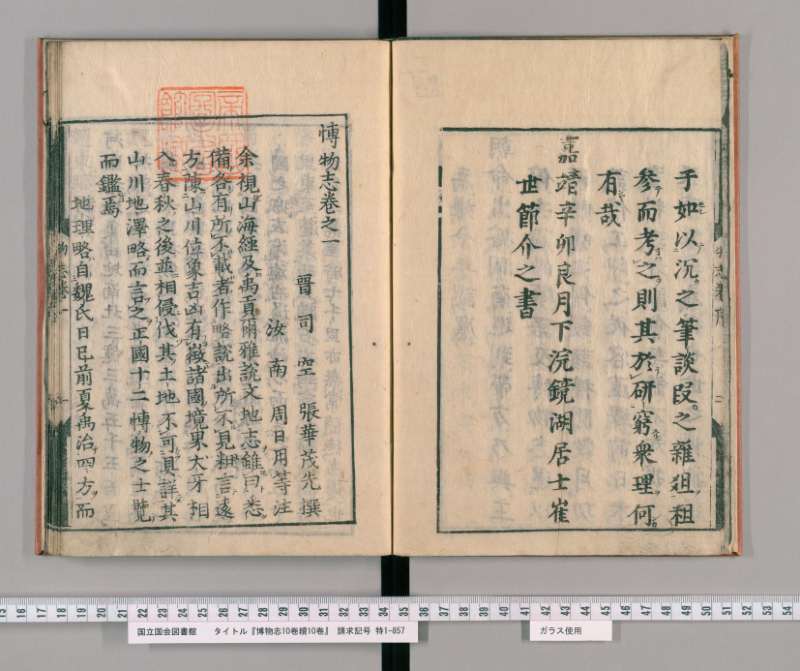 于如以沉之筆談段之雜俎
參而考之則其於研窮衆理何
有哉
嘉靖辛卯良月下浣鏡湖居士崔
世節介之書
博物志卷之一
晉司空張華茂先撰
汝南周日用等注
余視山海經及禹貢爾雅說文地志雖曰悉
備各有所不載者作略說出所不見粗言遠
方陳山川位象吉凶有徵諸國境界犬牙相
入春秋之後並相侵伐其土地不可具詳其
山川地澤略而言之正國十二博物之士覽
而鑑焉
地理略自魏氏日已前夏禹治四方而
国立国会図書館 タイトル『博物志10巻続10巻』 請求記号 特1-857
ガラス使用
15 16 17 18 19 20 21 22 23 24 25 26 27 28 29 30 31 32 33 34 35 36 37 38 39 40 41 42 43 44 45 46 47 48 49 50 51 52 53 54